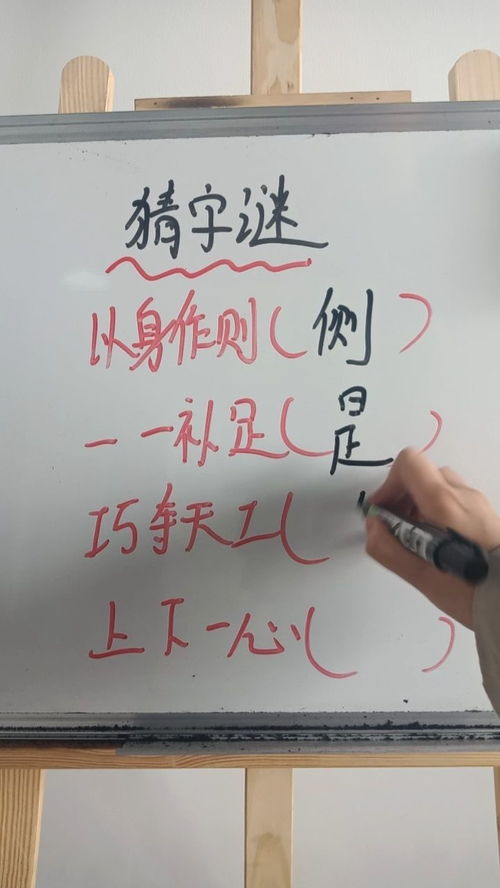 猜字谜
以身作则(侧)
一一补足(是)
巧夺天工(
上下一心()